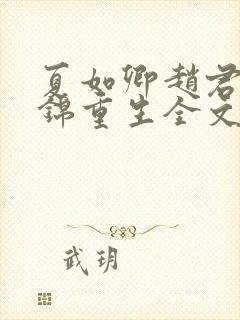 夏如卿趙君
錦重生全文
武玥